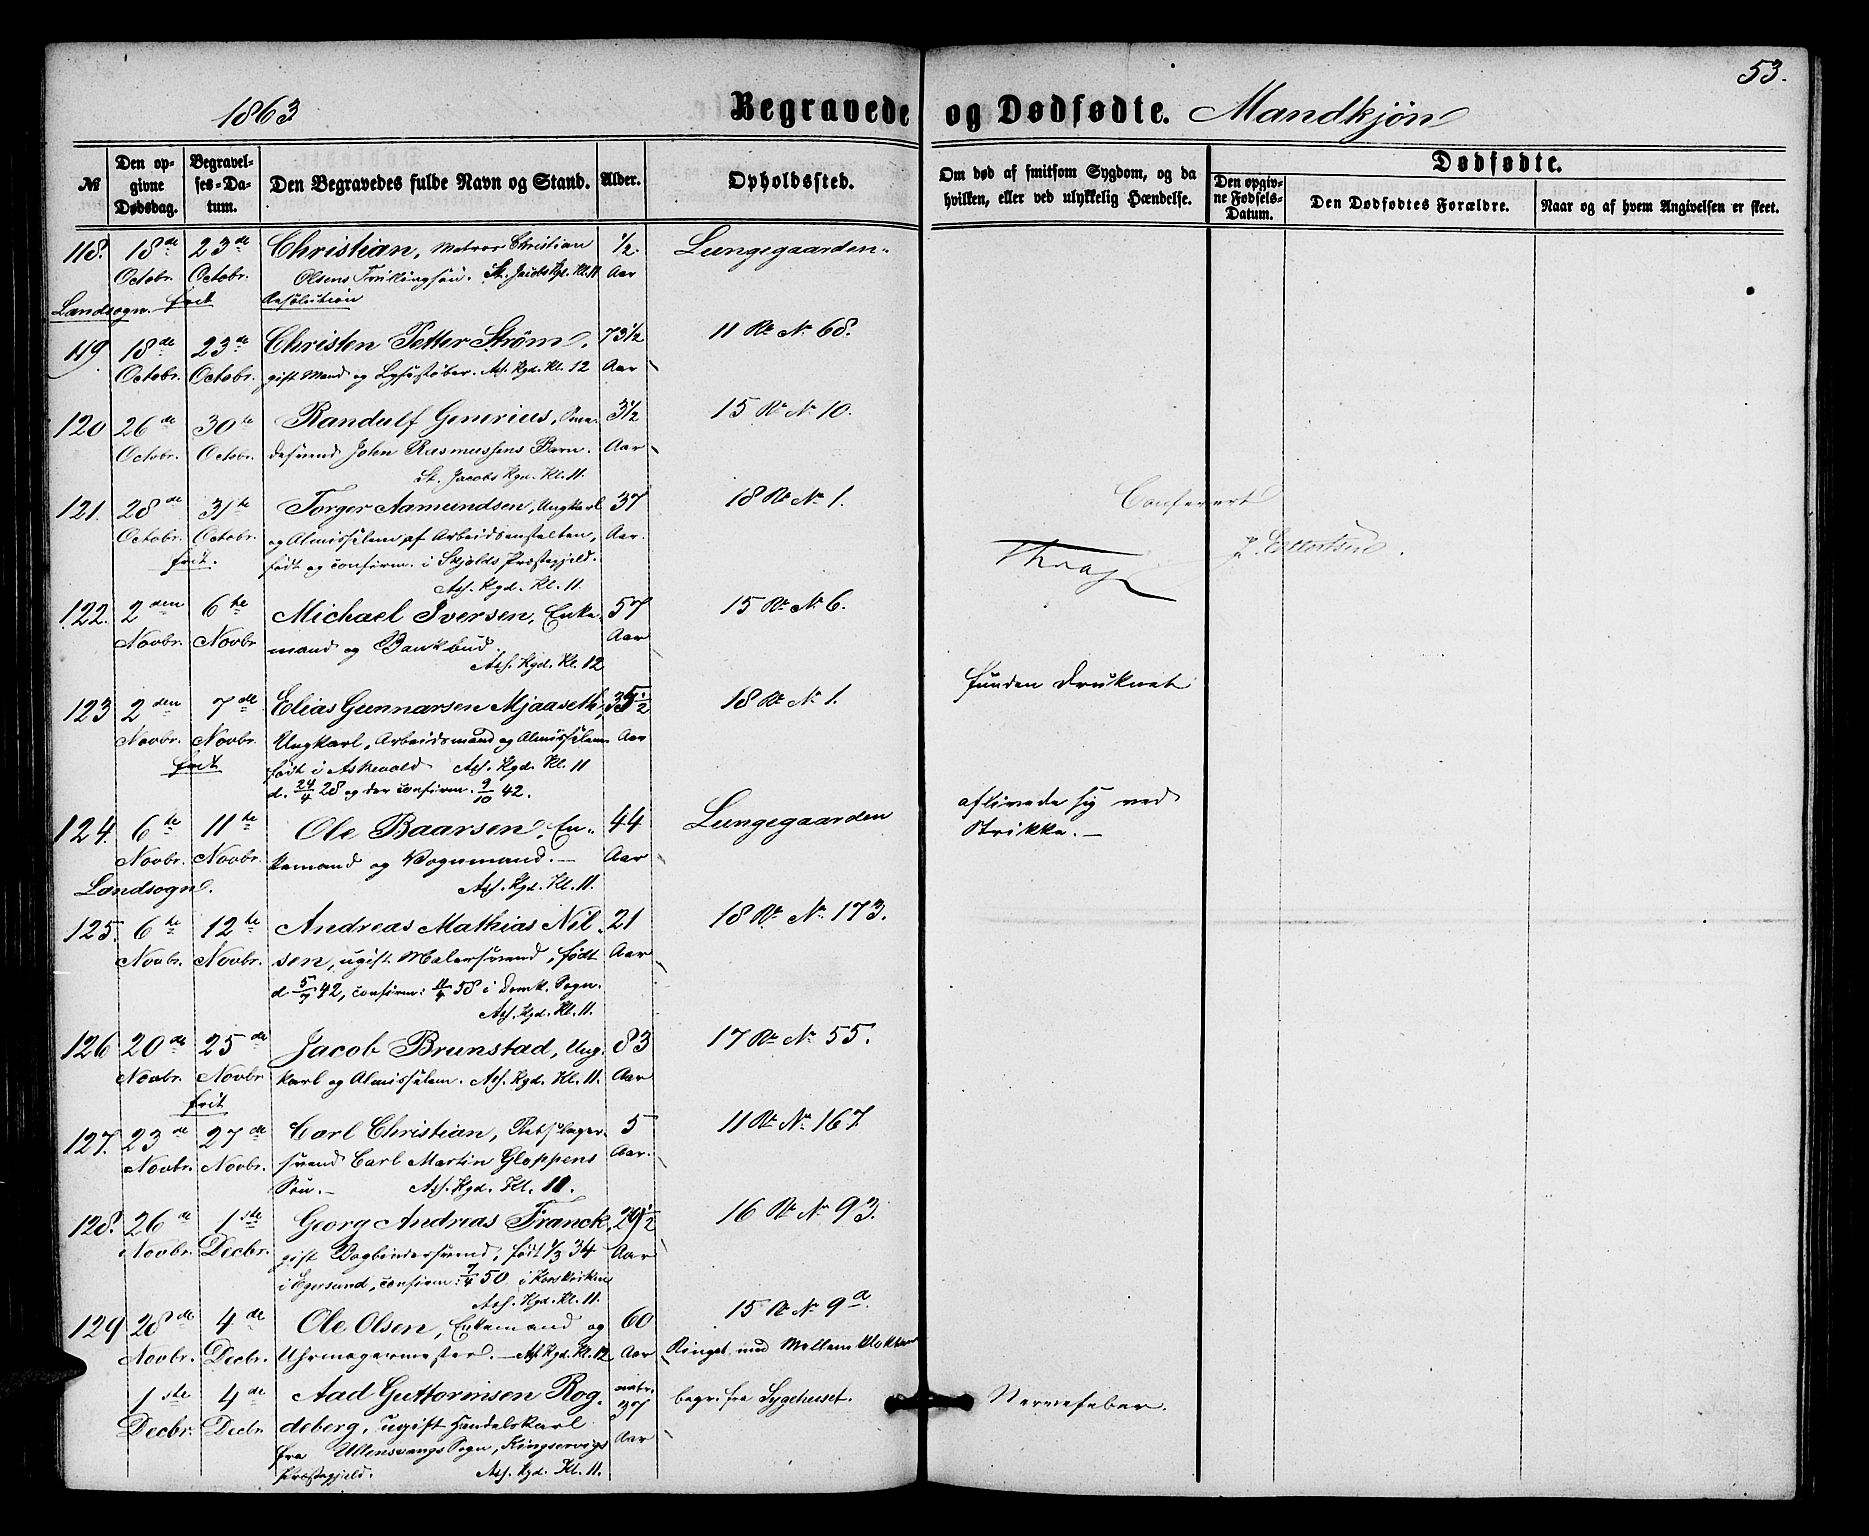 53.
1863
Begravede og Dødfødte. Mandkjøn
№
Den opgivne Dødsdag.
Begravelses-Datum.
Den Begravedes fulde Navn og Stand.
Alder.
Opholdssted.
Om død af smitsom Sygdom, og da hvilken, eller ved ulykkelig Hændelse.
Dødfødte.
Den opgivne Fødsels-Datum.
Den Dødfødtes Forældre.
Naar og af hvem Angivelsen er skeet.
118. 18de 23de Christian, Matros Christian 1/2. Lungegaarden.
Octobr. Octobr. Olsens Trillingsøn. St. Jacobs Kgd. Kl. 11 Aar
Landsogn. frit Resolution
119 18de 23de Christen Petter Strøm, 73 1/2 11 Rd No 68.
Octobr. Octobr. gift Mand og Lysestøber. Ass. Kgd. Kl. 12 Aar
120 26de 30te Randulf Generius, 3 1/2 15 Rd No 10.
Octobr. Octobr. desvend John Rasmussens Barn. Aar
St. Jacobs Kgd. Kl. 11.
121. 28de 31te Torger Aamundsen, Ungkarl 37 18 Rd No 1. Confereret
Octobr. Octobr. og Almisselem af Arbeidsanstalten, Aar.
frit. født og confirm. i Skjolds Præstegjeld.
Ass. Kgd. Kl. 11.
122. 2den 6te Michael Iversen, Enke- 57 15 Rd No 6.
Novbr. Novbr. mand og Bankbud. Aar
Ass. Kgd. Kl. 12
123 2den 7de Elias Gunnarsen Mjaaseth, 35 1/2 18 Rd No 1. funden druknet
Novbr. Novbr. Ungkarl, Arbeidsmand og Almisselem Aar
frit født i Askevold Ass. Kgd. Kl. 11
d. 24/4 28 og der confirm. 9/10 42.
124. 6te 11te Ole Baarsen, En- 44 Lungegaarden aflivede sig ved
Novbr. Novbr. kemand og Vognmand. — Aar Strikke. —
Landsogn. Ass. Kgd. Kl. 11.
125. 6te 12te Andreas Mathias Nil- 21 18 Rd No 173.
Novbr. Novbr. sen, ugift Malersvend, født Aar
d. 5/7 42, confirm: 11/4 58 i Domk. Sogn.
Ass. Kgd. Kl. 11.
126 20de 25de Jacob Brunstad, Ung- 83 17 Rd No 55.
Novbr. Novbr. karl og Almisselem. Ass. Kgd. Kl. 11. Aar
frit
127. 23de 27de Carl Christian, Rebslager- 5 11 Rd No 167
Novbr. Novbr. svend Carl Martin Gloppens Aar.
Søn. — Ass. Kgd. Kl. 11.
128. 26de 1ste Georg Andreas Franck, 29 1/2 16 Rd No 93.
Novbr. Decbr. gift Bogbindersvend, født 1/3 34 Aar
i Egersund, confirm: 7/4 50 i Korskirken
Ass. Kgd. Kl. 11.
129 28de 4de Ole Olsen, Enkemand og 60 15 Rd No 9a.
Novbr. Decbr. Uhrmagermester. — Ass. Kgd. Kl. 12 Aar Ringet med Mellemklokken
1ste 4de Aad Guttormsen Rog- omtr. 37 begr. fra Sygehuset. Nervefeber.
Decbr. Decbr. deberg, ugift Handelskarl Aar
fra Ullensvangs Sogn, Kingservigs
Præstegjeld. Ass. Kgd. Kl. 11.